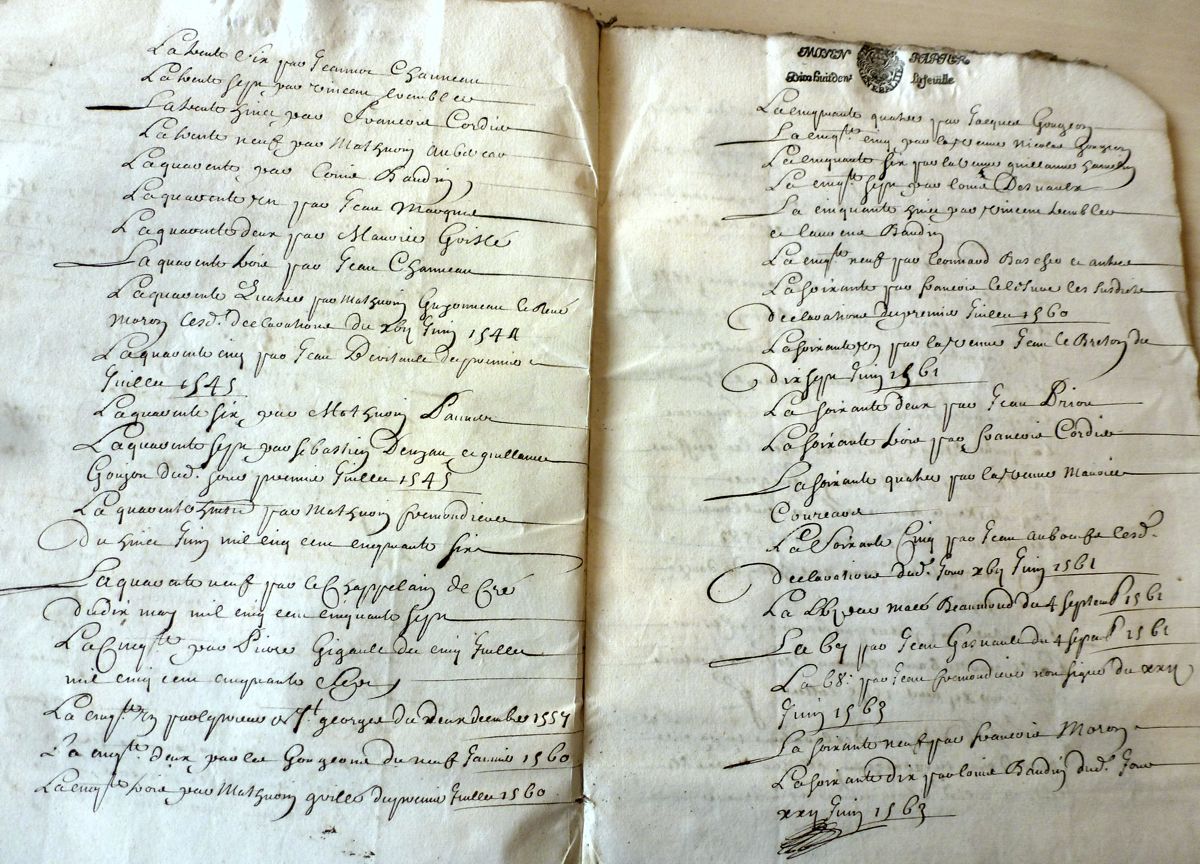 La trente six par Jeannot Channeau
La trente sept par Vincent
La trente huict par Francois Cordier
La trente neuf par Mathurin
La quarente par Louis Baudry
La quarente un par Jean
La quarente deux par Maurice
La quarente trois par Jean Channeau
La quarente Quatre par Mathurin Guyonneau et René
Moron lesd. declarations du xvii Juin 1544
La quarente cinq par Jean du premier
Juillet 1545
La quarente six par Mathurin
La quarente sept par Sebastien et Guillaume
Gougon dud. jour premier Juillet 1545
La quarente huict par Mathurin Fremondiere
du huict Juin mil cinq cent cinquante six
La quarente neuf par le Chappelain de Cré
du dix may mil cinq cent cinquante sept
La Cinqte par Pierre Gigault du cinq Juillet
mil cinq cent cinquante
La cinqte un par St georges du deux decembre 1557
La cinqte deux par les Gougeons du neuf Janvier 1560
La cinqte trois par Mathurin du premier Juillet 1560
MOYEN PAPIER
La cinquante quatre par Jacques Gougeon
La cinqte cinq par la Veuve Nicolas Gougeon
La cinquante six par la Veuve guillaume
La cinqte sept par Louis Desnaulx
La cinquante huict par Vincent
et Baudry
La cinqte neuf par Leonnard et autres
La soixante par francois les susdites
declarations du premier Juillet 1560
La soixante un par la Veuve Jean le Breton du
dix sept Juin 1561
La soixante deux par Jean Driou
La soixante trois par francois Cordier
La soixante quatre par la Veuve Maurice
La Soixante Cinq par Jean lesd.
declarations dud. Jour xvii Juin 1561
La par Macé Beaumond du 4 septemb 1561
La par Jean Gasnault du 4 septemb 1561
La 68. par Jean fremondiere non signé du xxii
Juin 1563
La soixante neuf par francois Moron
La soixante dix par Louis Baudry dud. Jour
xxii Juin 1563